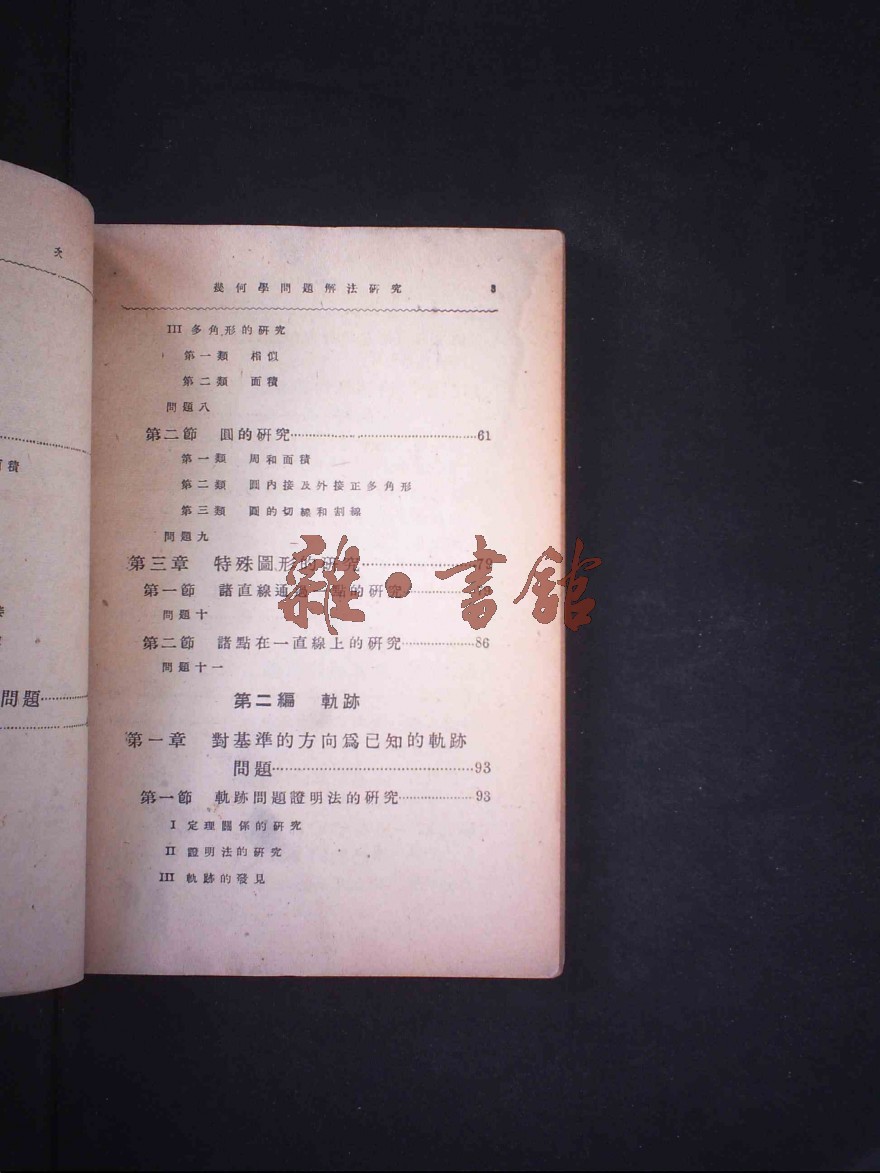 次
積
問題
幾何學問題解法研究 3
III 多角形的研究
第一類 相似
第二類 面積
問題八
第二節 圓的研究 61
第一類 周和面積
第二類 圓內接及外接正多角形
第三類 圓的切線和割線
問題九
第三章 特殊圖形的研究 79
第一節 諸直線通過一點的研究
問題十
第二節 諸點在一直線上的研究 86
問題十一
第二編 軌跡
第一章 對基準的方向爲已知的軌跡
問題 93
第一節 軌跡問題證明法的研究 93
I 定理關係的研究
II 證明法的研究
III 軌跡的發見
雜·書館